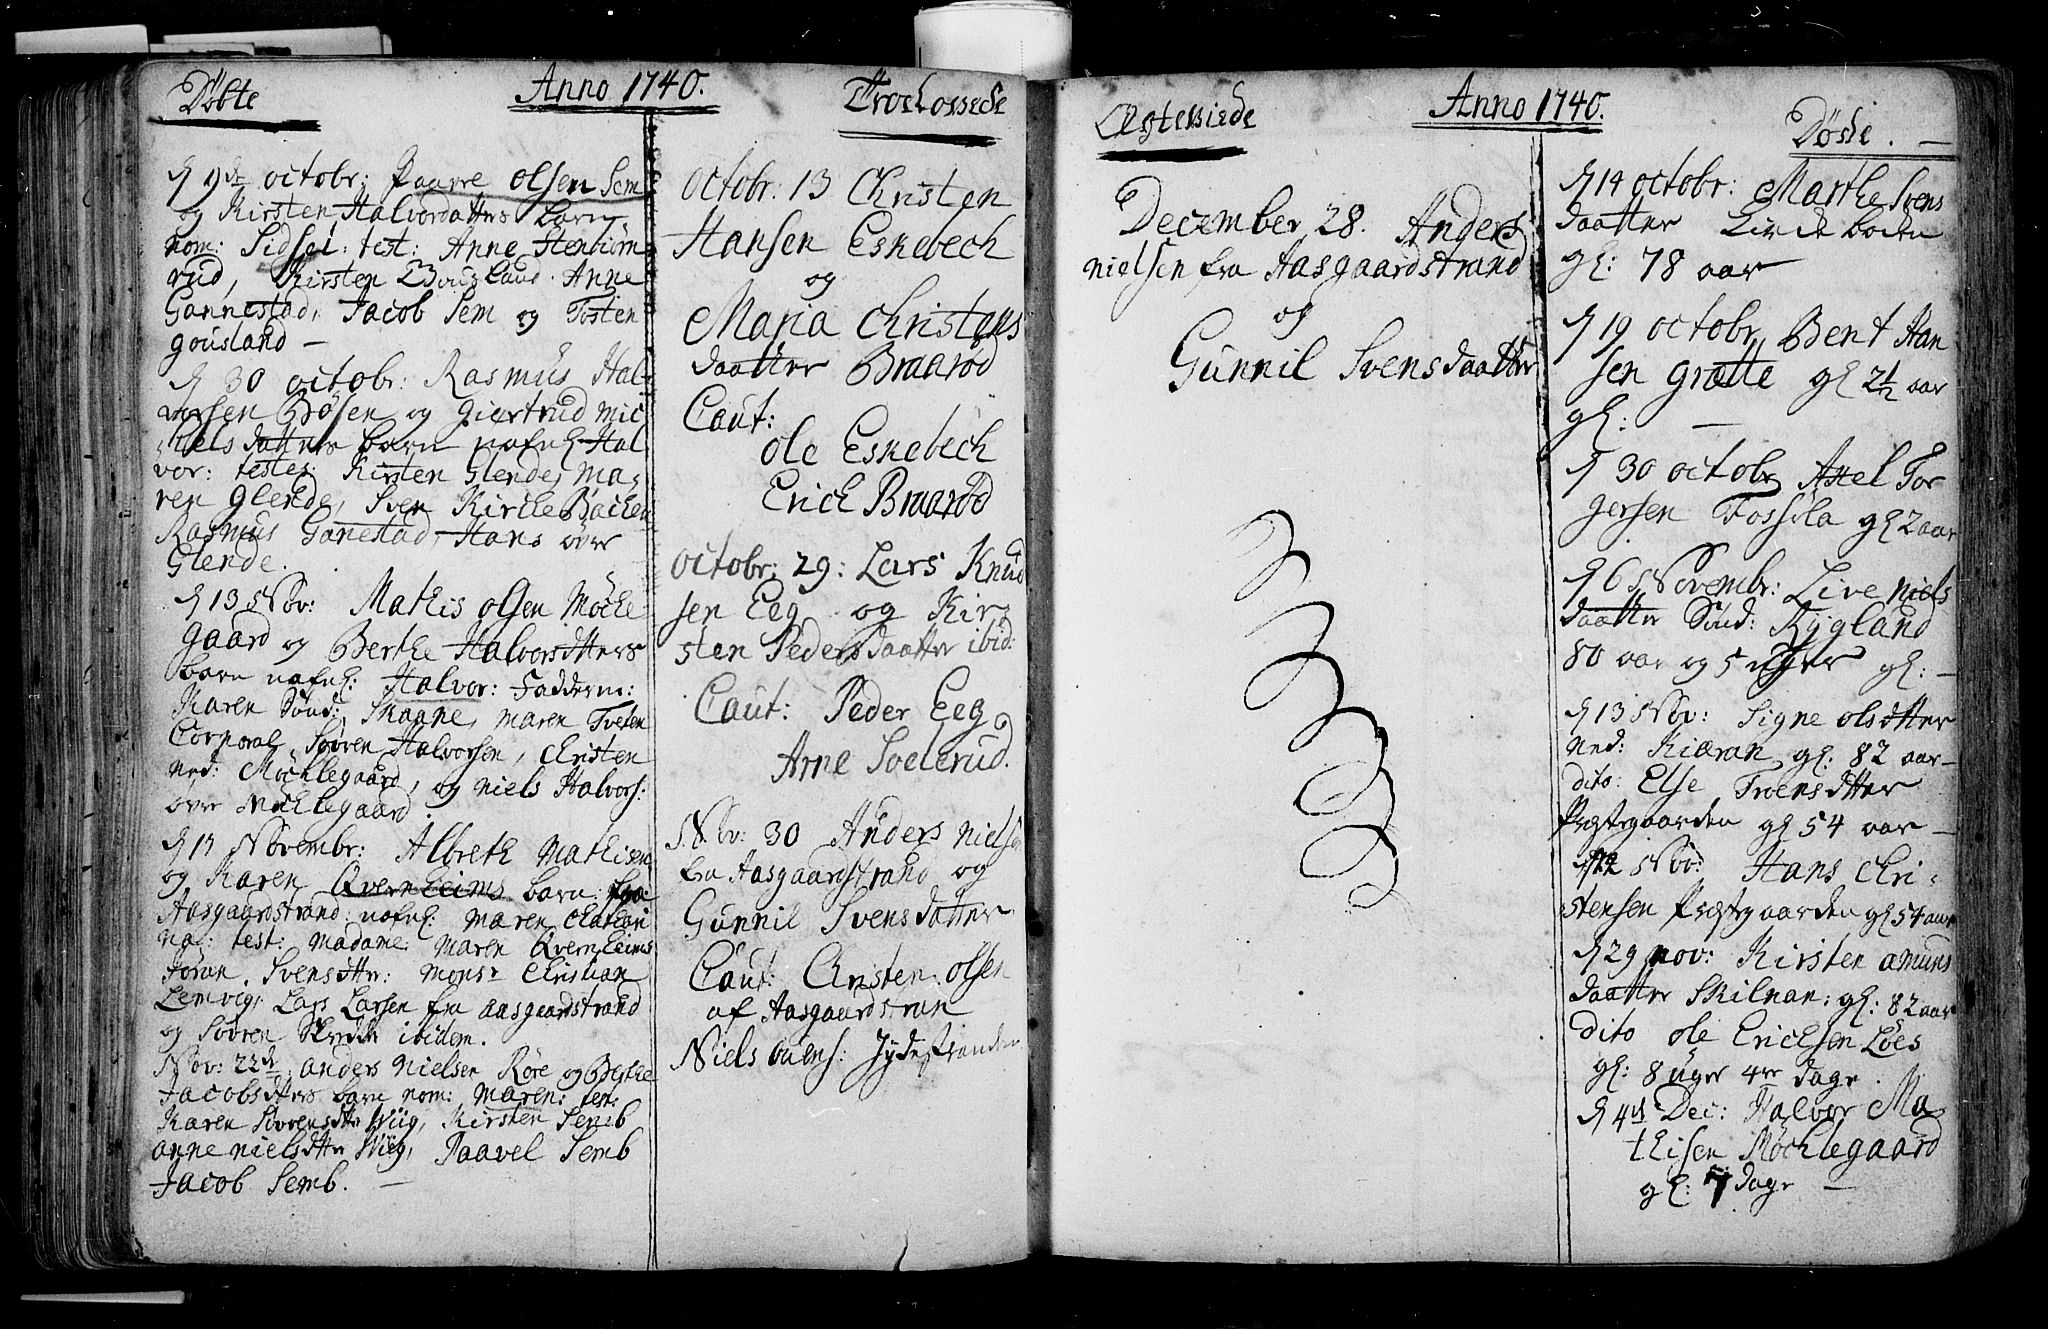 Døbte
Anno 1740.
d 9de octobr: Paarre olsen Sem
og Kirsten Halvordatters barn
nom: Sidsel: test: Anne Stenbiørn
rud, Kirsten Anne
Gannestad, Jacob Sem og Tosten
gousland —
d 30 octobr: Rasmus Hal-
vorsen Bøsen og Giertrud Mic
hels datters barn nafnl: Hal
vor: testes: Kirsten Glende, Ma-
ren Glende, Sven Kirchebachen
Rasmus Ganestad, Hans øvre
Glende.
d 13 Nov: Mathis olsen Møchle
gaard og Berthe Halvorsdtters
barn nafnl: Halvor: Fadderne:
Karen Sønd: Skaane, Maren Tveten
Corporal Søvren Halvorsen, Christen
Ned: Møchlegaard, og Niels Halvors:
øvre Møchlegaard
d 13 Novembr: Albreth Mathisen
og Karen Qvernheims barn fra
Aasgaardstrand: nafnl: Maren Chathari
na: test: Madame: Maren Qvernheims
Jøran Svensdtter: Monsr Christian
Lemvig, Lars Larsen fra Aasgaardstrand
og Søvren ibidem.
Nov: 22de Anders Nielsen Røre og Berthe
Jacobsdtters barn nom: Maren: test:
Karen Søvrensdtter Wiig, Kirsten Semb
Anne Nielsdtter Wiig, Paavel Semb
Jacob Semb. —
Trolovede
Octobr: 13 Christen
Hansen Eskebech
og
Maria Christens
daatter Braarød
Caut:
Ole Eskebech
Erich Braarød
Octobr: 29: Lars Knud
sen Eeg og Kir
sten Pedersdaatter ibid:
Caut: Peder Eeg
Arne Solerud.
Nov: 30 Anders Niels
fra Aasgaardstrand og
Gunnil Svensdatter
Caut: Christen olsen
af Aasgaardstran
Niels Jydestranden
Egteviede
Anno 1740.
December 28. Anders
Nielsen fra Aasgaardstrand
og
Gunnil Svensdaatter
Døde. —
d 14 octobr: Marthe Svens
daatter Lindeboden
gl: 78 aar
d 19 octobr Bent Han
sen Grætte gl 2½ aar
gl: —
d 30 octobr Axel Tor
gersen gl 2 aar
d 6 Novembr: Live Niels
daatter Sønd: Rygland
80 aar og 5 uger gl: —
d 13 Nov: Signe olsdtter
Ned: Kiæran gl: 82 aar —
dito: Else Troensdtter
Præstegaarden gl 54 aar —
d 22 Nov: Hans Chri-
stensen Præstegaarden gl 54 aar
d 29 Nov: Kirsten Amuns
daatter Skilnan: gl: 82 aar
dito Ole Erichsen Løes
gl: 8 uger 4re dage.
d 4de Dec: Halvor Ma
thisen Møchlegaard
gl: 7 dage —